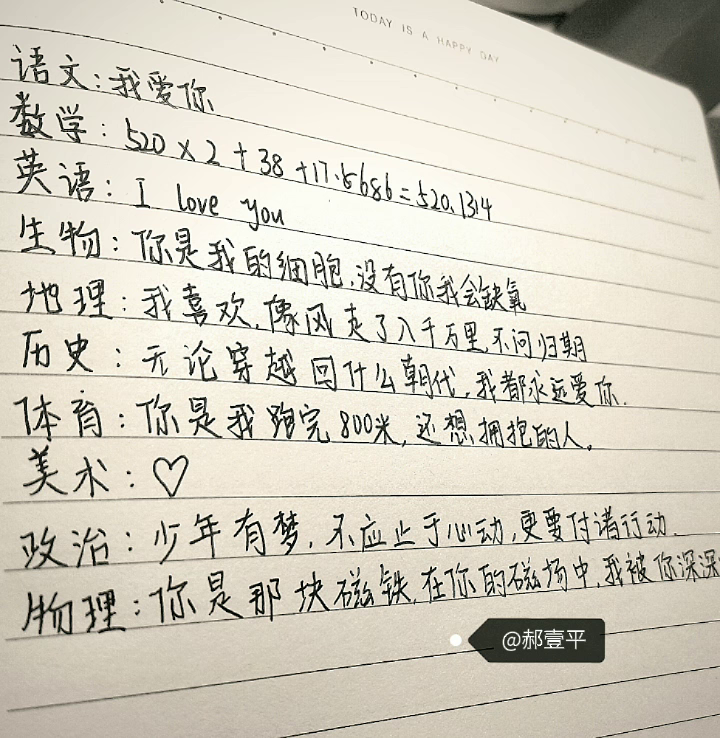 TODAY IS A HAPPY DAY
语文：我爱你
数学：520×2+38+17.5686=520.1314
英语：I love you
生物：你是我的细胞，没有你我会缺氧
地理：我喜欢，像风走了八千万里，不问归期
历史：无论穿越回什么朝代，我都永远爱你．
体育：你是我跑完800米，还想拥抱的人。
美术：♡
政治：少年有梦，不应止于心动，更要付诸行动．
物理：你是那块磁铁，在你的磁场中，我被你深深
@郝壹平